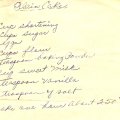 Cake
shortening
cups sugar
eggs
cups flour
teaspoon baking powder
cup sweet milk
teaspoon vanilla
teaspoon of salt
one hour about 350°